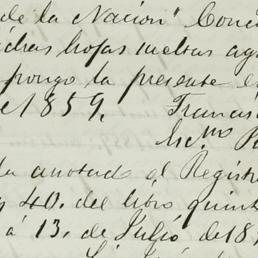 de la Nacion" Conc
dichas hojas sueltas ag
pongo la presente e
e 1859. Francis
Sec.no
a anotado al Registr
40. del libro quint
á 13. de Julio de 18